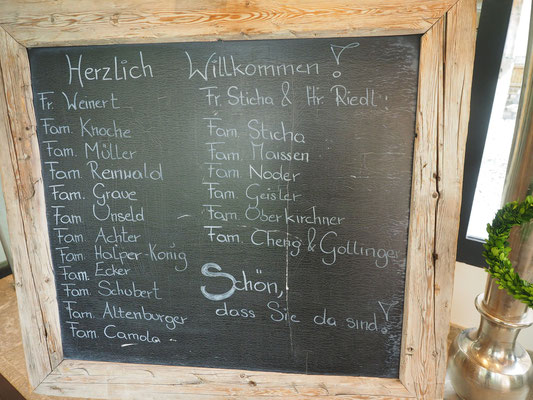 Herzlich Willkommen!
Fr. Weinert
Fam. Knoche
Fam. Müller
Fam. Reinwald
Fam. Graue
Fam. Unseld
Fam. Achter
Fam. Halper-König
Fam. Ecker
Fam. Schubert
Fam. Altenburger
Fam. Camola
Fr. Sticha & Hr. Riedl!
Fam. Sticha
Fam. Maissen
Fam. Noder
Fam. Geisler
Fam. Oberkirchner
Fam. Cherig & Gollinger
Schön,
dass Sie da sind!